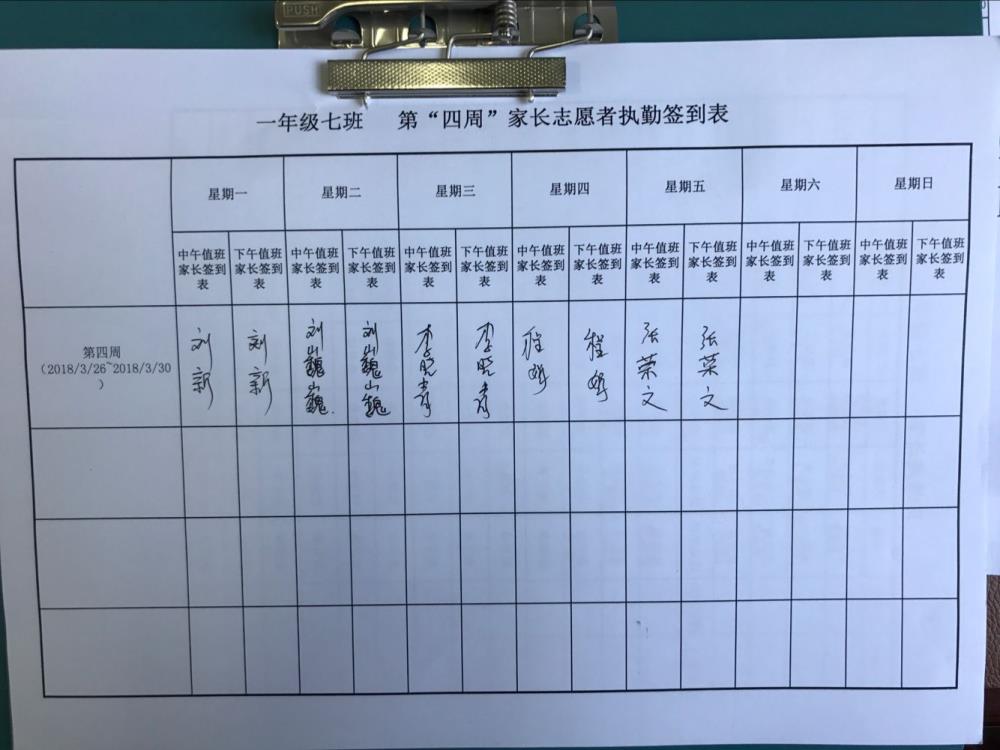 PUSH
一年级七班 第“四周”家长志愿者执勤签到表
星期一 星期二 星期三 星期四 星期五 星期六 星期日
中午值班家长签到表 下午值班家长签到表 中午值班家长签到表 下午值班家长签到表 中午值班家长签到表 下午值班家长签到表 中午值班家长签到表 下午值班家长签到表 中午值班家长签到表 下午值班家长签到表 中午值班家长签到表 下午值班家长签到表 中午值班家长签到表 下午值班家长签到表
第四周
(2018/3/26~2018/3/30
)
刘新 刘新 刘巍巍 刘巍巍 李晓青 李晓青 程 程 张荣文 张荣文